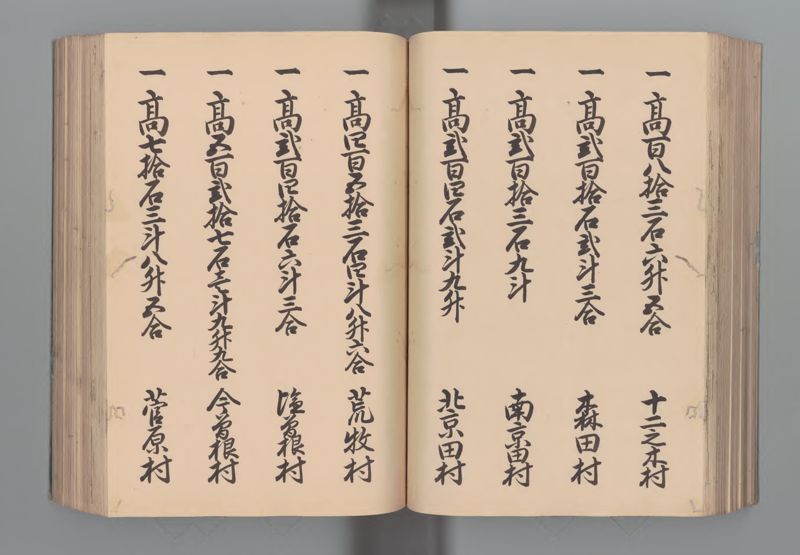 一 高百八拾三石六升五合 十二之木村
一 高弐百拾石弐斗三合 森田村
一 高弐百拾三石九斗 南京田村
一 高弐百四石弐斗九升 北京田村
一 高四百五拾三石四斗八升六合 荒牧村
一 高弐百四拾石六斗三合 塩曽根村
一 高五百弐拾七石三斗九升九合 今曽根村
一 高七拾石三斗八升五合 菅原村